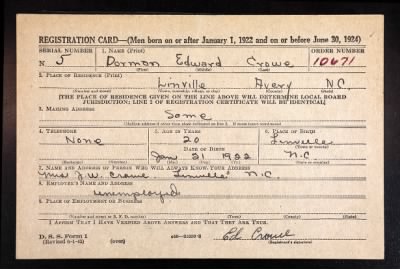 REGISTRATION CARD—(Men born on or after January 1, 1922 and on or before June 30, 1924)
SERIAL NUMBER 1. NAME (Print) ORDER NUMBER
N 5 Dormon Edward Crowe 10671
(First) (Middle) (Last)
2. PLACE OF RESIDENCE (Print)
Linville Avery N.C.
(Number and street) (Town, township, village, or city) (County) (State)
[THE PLACE OF RESIDENCE GIVEN ON THE LINE ABOVE WILL DETERMINE LOCAL BOARD
JURISDICTION; LINE 2 OF REGISTRATION CERTIFICATE WILL BE IDENTICAL]
3. MAILING ADDRESS
Same
(Mailing address if other than place indicated on line 2. If same insert word same)
4. TELEPHONE 5. AGE IN YEARS 6. PLACE OF BIRTH
None 20 Linville
DATE OF BIRTH (Town or county)
Jan 31 1922 N.C
(Exchange) (Number) (Mo.) (Day) (Yr.) (State or country)
7. NAME AND ADDRESS OF PERSON WHO WILL ALWAYS KNOW YOUR ADDRESS
Mrs J.W. Crowe Linville N.C
8. EMPLOYER'S NAME AND ADDRESS
Unemployed
9. PLACE OF EMPLOYMENT OR BUSINESS
(Number and street or R. F. D. number) (Town) (County) (State)
I AFFIRM THAT I HAVE VERIFIED ABOVE ANSWERS AND THAT THEY ARE TRUE.
D. S. S. Form 1
(Revised 6-1-42) (over) Ed. Crowe
(Registrant's signature)